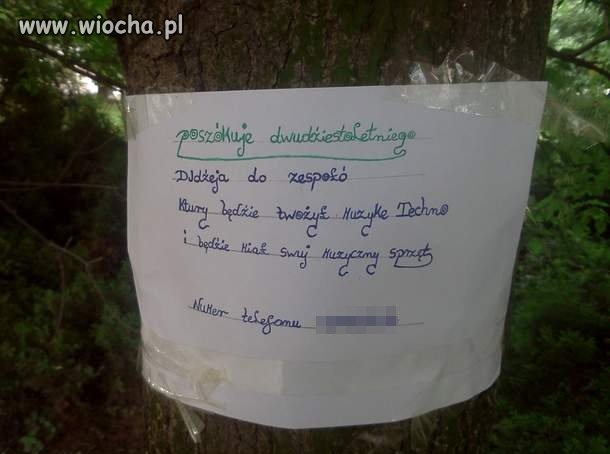 www.wiocha.pl
poszókuje dwudźiestoletniego
DJdżeja do zespołó
Ktury będźie twożył Muzyke Techno
i będźie Miał swuj Muzyczny sprzęt
NuMer telefonu